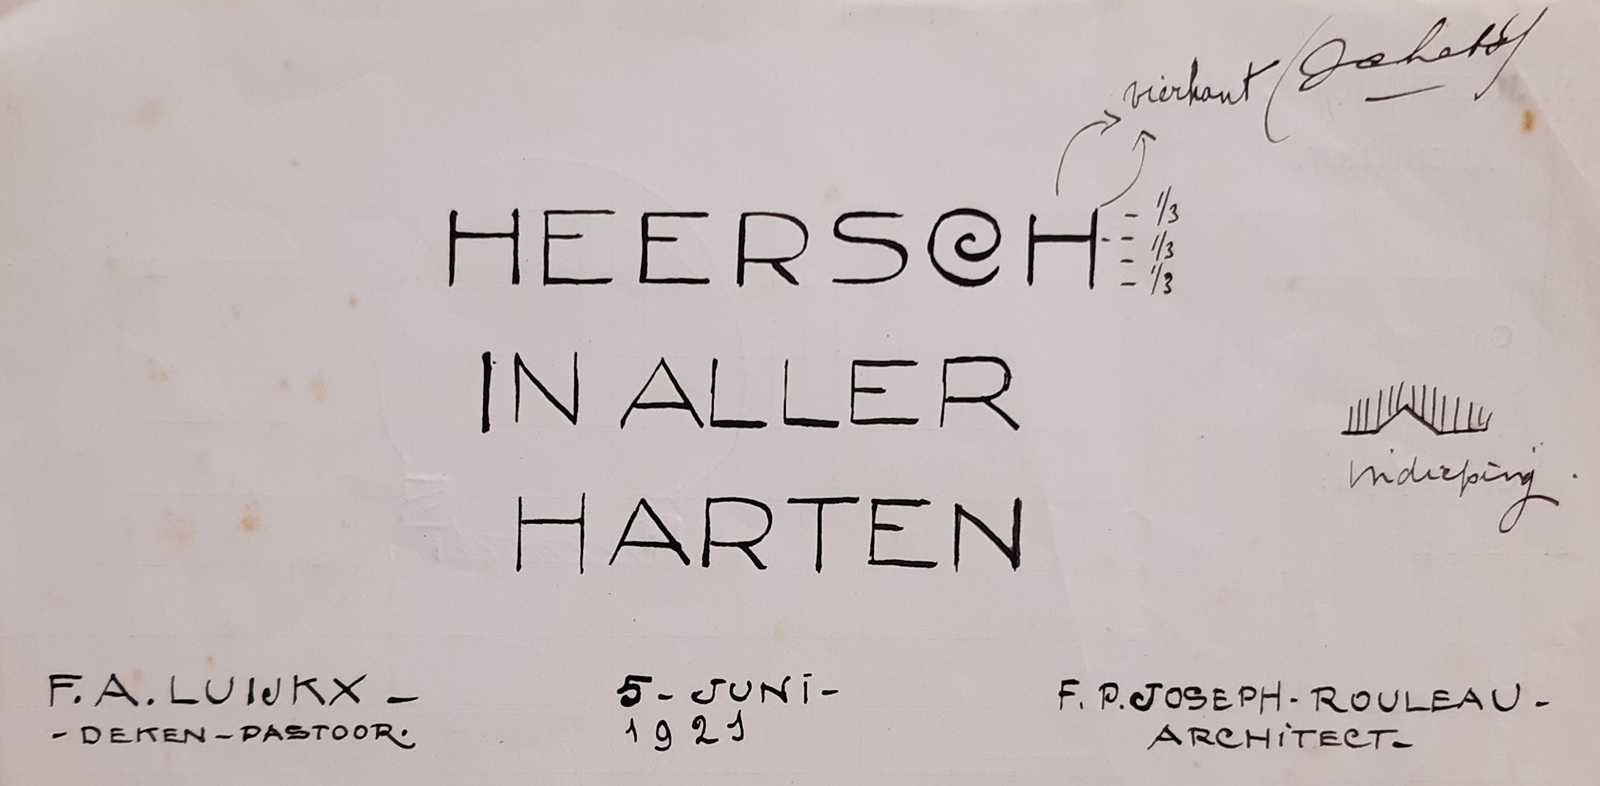 vierkant
HEERSCH
1/3
1/3
1/3
IN ALLER
HARTEN
F. A. LUIJKX -
- DEKEN - PASTOOR.
5 - JUNI -
1921
F. P. JOSEPH - ROULEAU -
ARCHITECT -